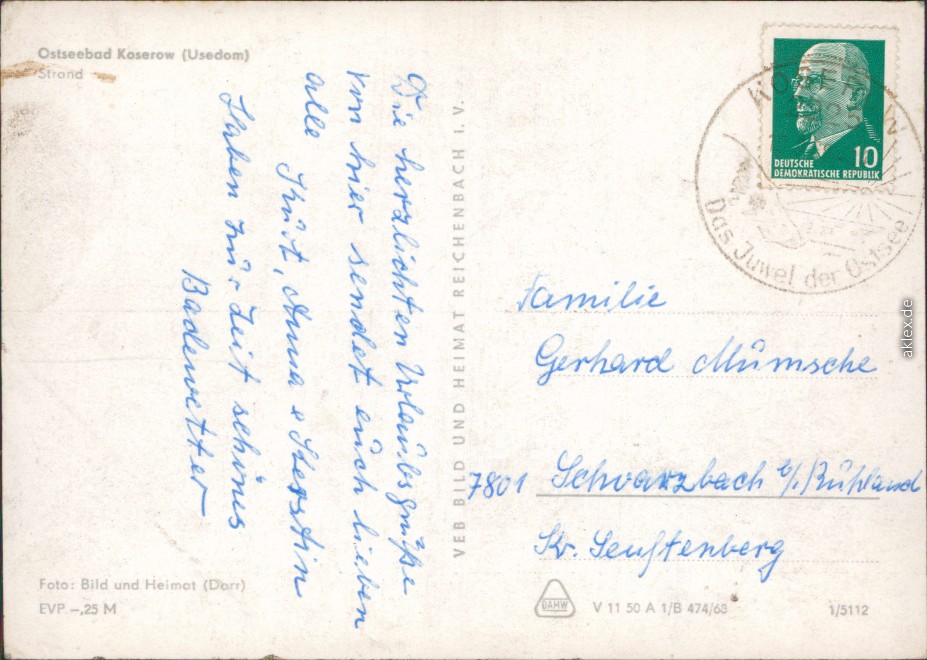 Ostseebad Koserow (Usedom)
Strand
Die herzlichten Urlaubsgrüße
von hier sendet euch lieben
alle Kurt, Anna &
Haben zur Zeit schönes
Badewetter
VEB BILD UND HEIMAT REICHENBACH I. V.
DEUTSCHE
DEMOKRATISCHE REPUBLIK
10
Das Juwel der Ostsee
Familie
Gerhard Mümsche
7801 Schwarzbach b/Ruhland
Kr. Senftenberg
Foto: Bild und Heimat (Darr)
EVP -,25 M
DAMW
V 11 50 A 1/B 474/68
1/5112
aklex.de